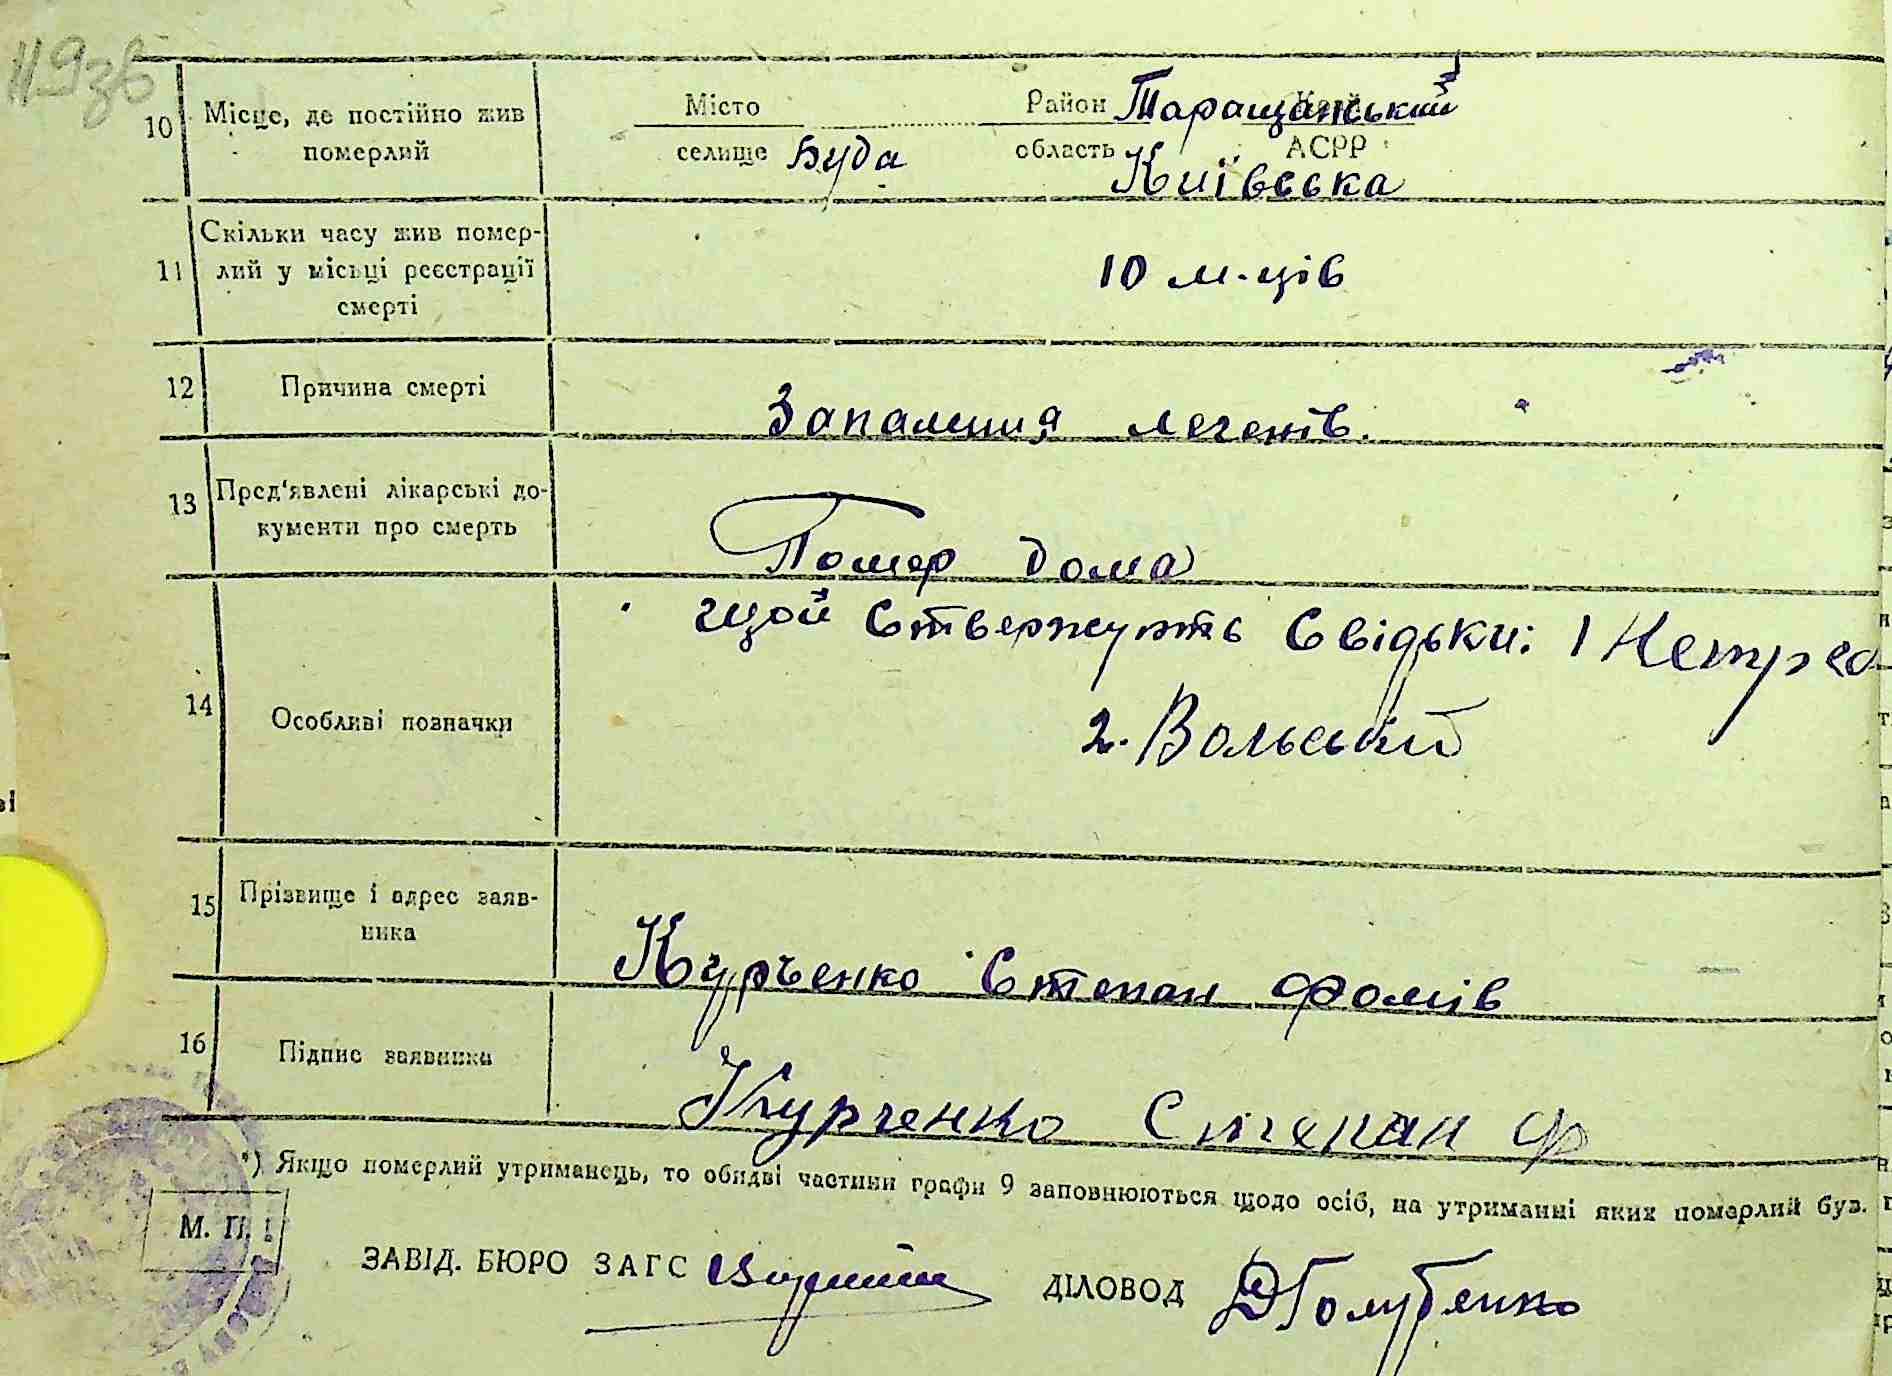 119зв
10 Місце, де постійно жив померлий
Місто селище Буда Район Таращанський область Київська Край АСРР
11 Скільки часу жив помер-
лий у місьці реєстрації
смерті
10 м-ців
12 Причина смерті
Запалиния легенів.
13 Пред'явлені лікарські до-
кументи про смерть
Помер дома
14 Особливі позначки
Свідьки: 1
2. Вольский
15 Прізвище і адрес заяв-
ника
Курченко Степан Фомів
16 Підпис заявника
Курченко Степан Ф
*) Якщо померлий утриманець, то обидві частини графи 9 заповнюються щодо осіб, на утриманні яких померлий був.
М. П.
ЗАВІД. БЮРО ЗАГС
ДІЛОВОД Голубенко